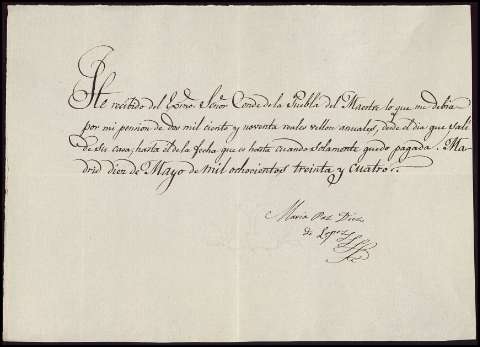 He recibido del Exmo. Señor Conde de la Puebla del Maestre lo que me debia
por mi pension de dos mil ciento y noventa reales vellon anuales, desde el dia que sali
de su casa, hasta el de la fecha que es hasta cuando solamente quedo pagada. Ma-
drid diez de Mayo de mil ochocientos treinta y cuatro.
Maria Paz Diez
de Lopez